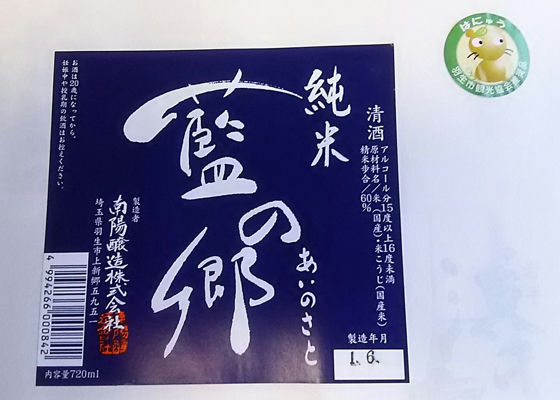 はにゅう
羽生市観光協会推奨品
清酒
アルコール分15度以上16度未満
原材料名/米(国産)・米こうじ(国産米)
精米歩合/60%
純米
藍の郷
あいのさと
製造年月
1.6.
製造者
南陽醸造株式会社
埼玉県羽生市上新郷五九五一
お酒は20歳になってから。
妊娠中や授乳期の飲酒はお控えください。
4994266000842
内容量720ml